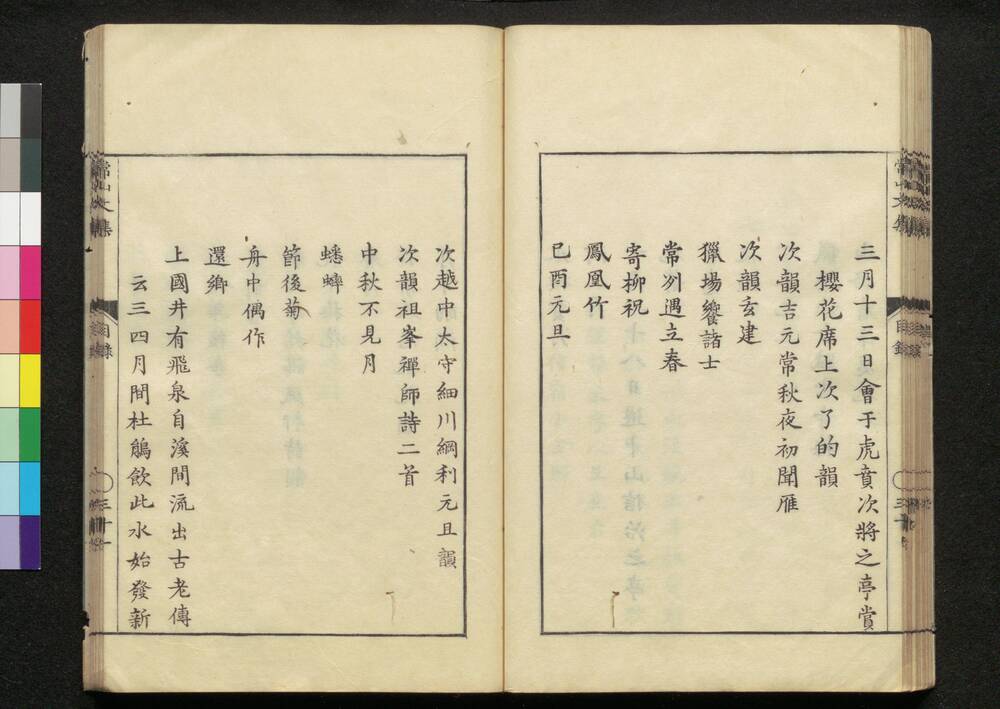 三月十三日會于虎賁次將之亭賞
櫻花席上次了的韻
次韻吉元常秋夜初聞雁
次韻玄建
獵場饗諸士
常州遇立春
寄柳祝
鳳凰竹
己酉元旦
次越中太守細川綱利元旦韻
次韻祖峯禪師詩二首
中秋不見月
蟋蟀
節後菊
舟中偶作
還鄉
上國井有飛泉自溪間流出古老傳
云三四月間杜鵑飲此水始發新
常山文集
目錄
三十一